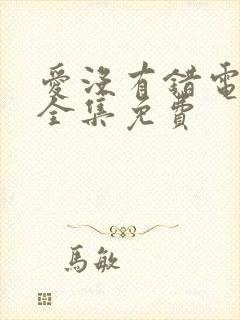 愛沒有錯電
全集免費
馬敏